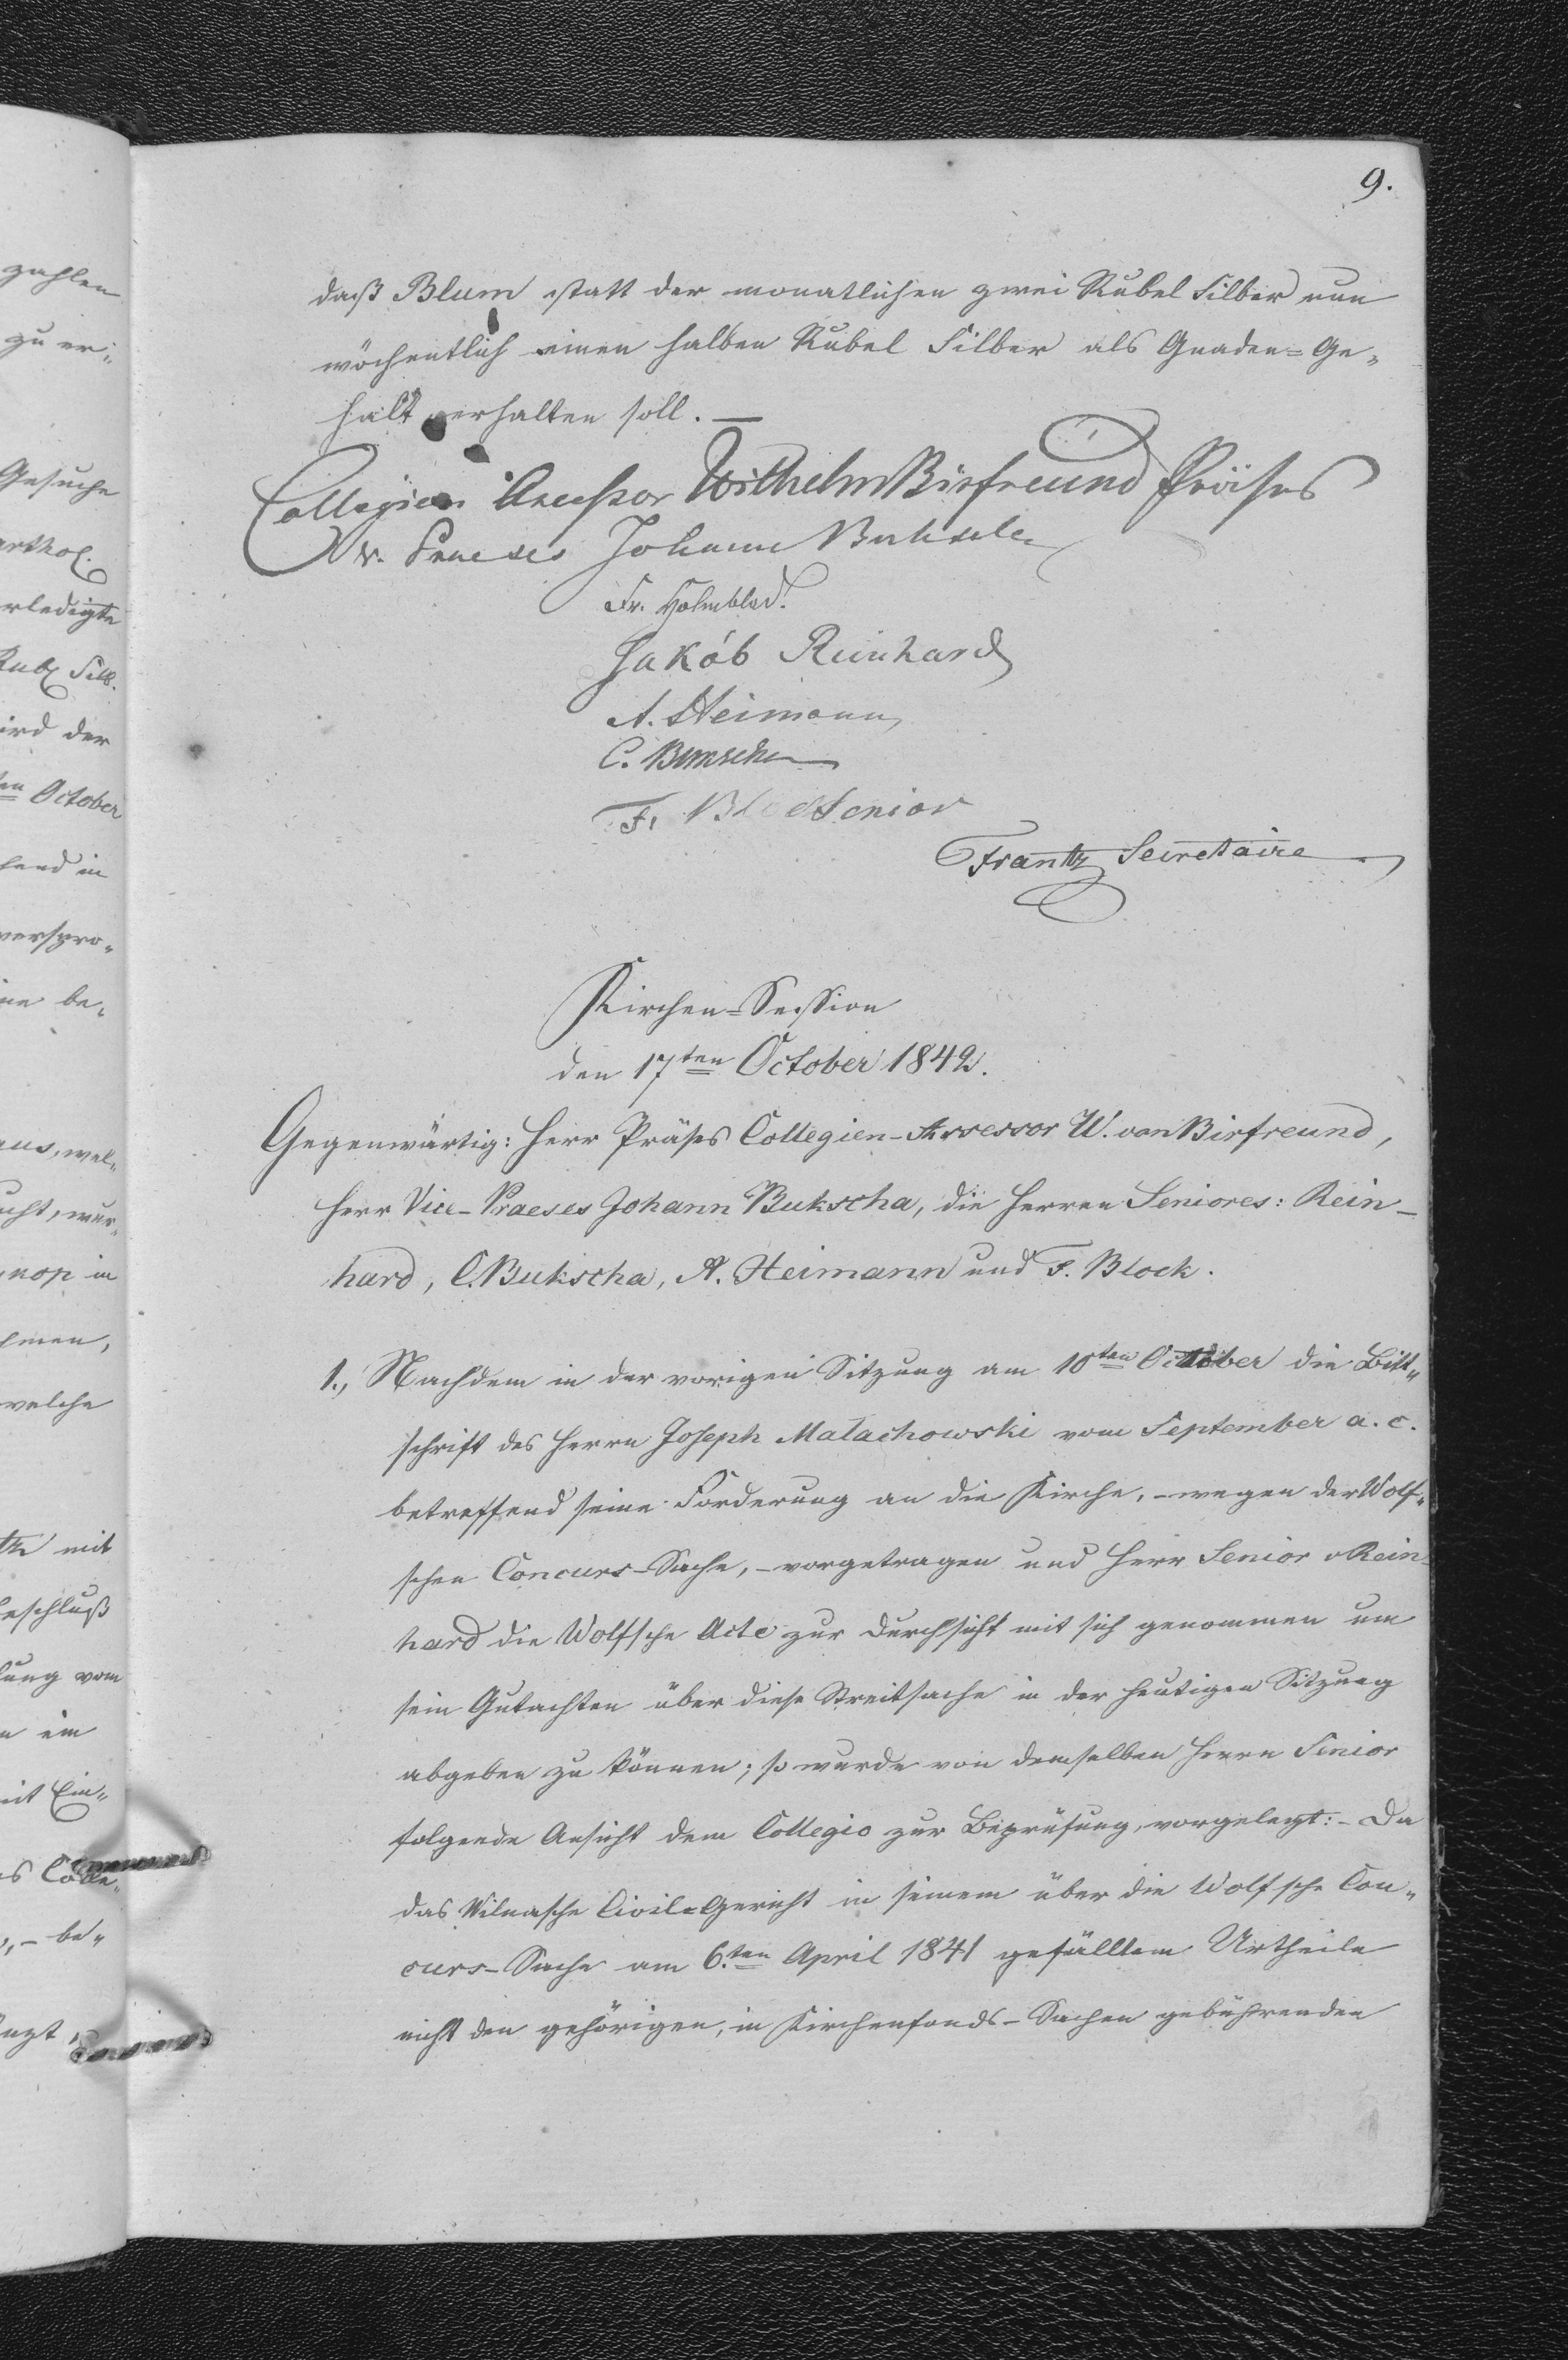 9.
daß Blum statt der monatlichen zwei Rubel Silber nun
wöchentlich einen halben Rubel Silber als Gnaden=Ge„
halt erhalten soll. —
Collegien Assessor Wilhelm Birfreund Präses
V. Praeses Johann
Fr. Holmblad.
Jakób Reinhard
A. Heimann
C.
F. Block Senior
Frantz Secretaire
Kirchen=Session
den 17ten October 1842.
Gegenwärtig: Herr Präses Collegien-Assessor W. von Birfreund,
Herr Vice-Praeses Johann Bukscha, die Herren Seniores: Rein-
hard, C. Bukscha, A. Heimann und F. Block.
1., Nachdem in der vorigen Sitzung am 10ten October die Bitt„
schrift des Herrn Joseph Malachowski vom September a. c.
betreffend seine Forderung an die Kirche, - wegen der Wolf„
schen Concurs-Sache, - vorgetragen und Herr Senior Rein-
hard die Wolfsche Acte zur Durchsicht mit sich genommen um
sein Gutachten über diese Streitsache in der heutigen Sitzung
abgeben zu können; so wurde von demselben Herrn Senior
folgende Ansicht dem Collegio zur Beprüfung vorgelegt: - Da
das Wilnasche Civil-Gericht in seinem über die Wolfsche Con„
curs-Sache am 6.ten April 1841 gefälltem Urtheile
nicht den gehörigen, in Kirchenfonds-Sachen gebührenden
zahlen
zu er„
Gesuche
erledigte
Rub Silb.
wird der
October
verspro„
be„
wel„
in
welche
mit
Beschluß
vom
ein
mit Ein„
Colle„
- be„